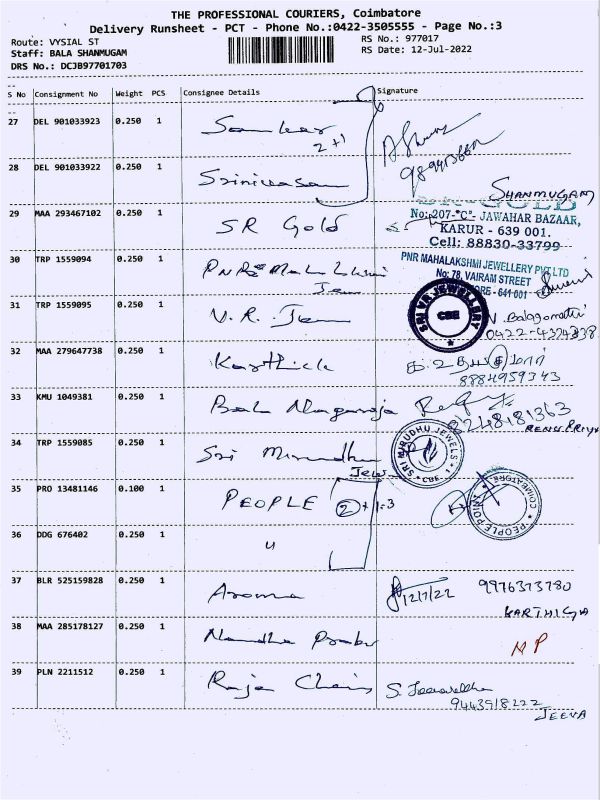 THE PROFESSIONAL COURIERS, Coimbatore
Delivery Runsheet - PCT - Phone No.:0422-3505555 - Page No.:3
Route: VYSIAL ST
RS No.: 977017
Staff: BALA SHANMUGAM
RS Date: 12-Jul-2022
DRS No.: DCJB97701703
S No Consignment No Weight PCS Consignee Details Signature
27 DEL 901033923 0.250 1 Sankar
2+1
28 DEL 901033922 0.250 1 Srinivasan
SHANMUGAM
29 MAA 293467102 0.250 1 SR Gold
No: 207-"C"- JAWAHAR BAZAAR,
KARUR - 639 001.
Cell: 88830-33799
30 TRP 1559094 0.250 1 PNR Mahalakshmi
Jew
PNR MAHALAKSHMI JEWELLERY PVT LTD
No: 78, VAIRAM STREET
641 001
31 TRP 1559095 0.250 1 V.R. Jew
SRI VR JEWELLERY
CBE
V. Balagomathi
0422-4374338
32 MAA 279647738 0.250 1 Karthick
8884959343
33 KMU 1049381 0.250 1 Bala Nagaraja
8248181363
RENUPRIYA
34 TRP 1559085 0.250 1 Sri Mirudhu
Jew
SRI MIRUDHU JEWELS
CBE
35 PRO 13481146 0.100 1 PEOPLE 2+1=3
PEOPLE POINT
COIMBATORE
36 DDG 676402 0.250 1 "
37 BLR 525159828 0.250 1 Aroma
12/7/22 9976373780
KARTHIGA
38 MAA 285178127 0.250 1 Nandha Prabu
NP
39 PLN 2211512 0.250 1 Raja Chains
9443918222
JEEVA